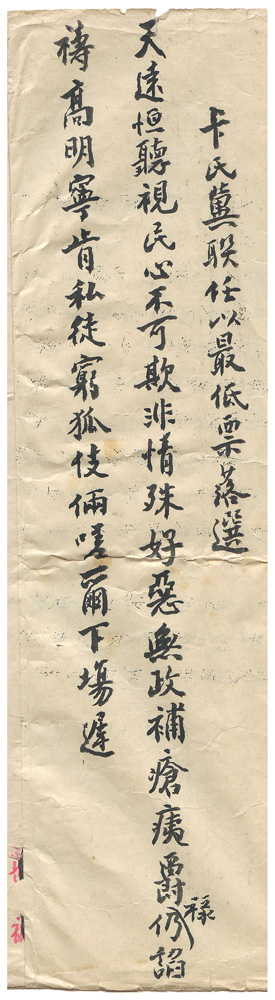 卡氏冀联任以最低票落選
天遠恒聽視民心不可欺非情殊好惡無政補瘡痍爵祿仍諂
禱高明寧肯私徒窮狐伎倆嗟爾下場遲